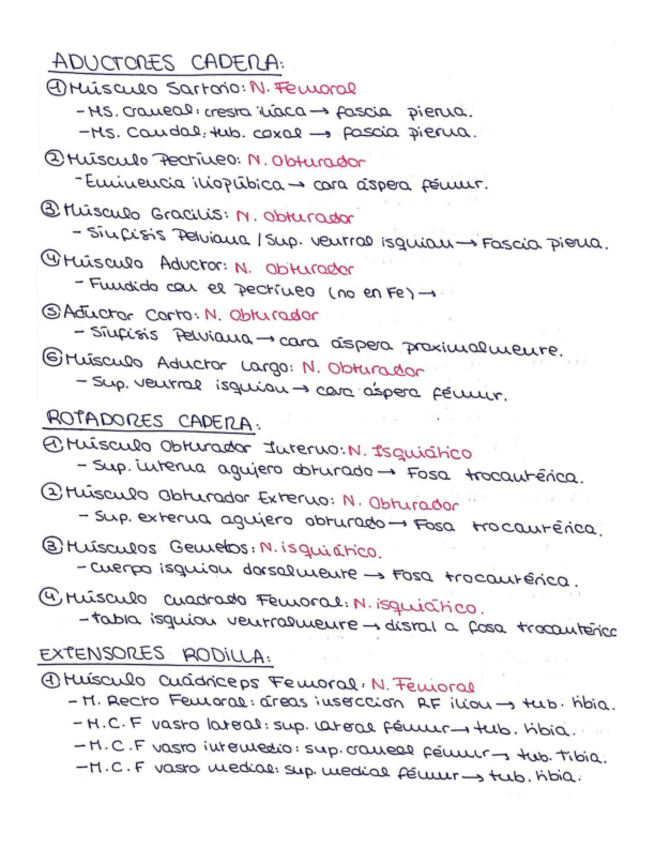 ADUCTORES CADERA:
① Músculo Sartorio: N. Femoral
- Ms. craneal: cresta iliaca → fascia pierna.
- Ms. Caudal: tub. coxal → fascia pierna.
② Músculo Pectíneo: N. Obturador
- Eminencia iliopúbica → cara áspera fémur.
③ Músculo Gracilis: N. obturador
- Sínfisis Pelviana / Sup. ventral isquion → Fascia pierna.
④ Músculo Aductor: N. obturador
- Fundido con el pectíneo (no en Fe) →
⑤ Aductor Corto: N. Obturador
- Sínfisis Pelviana → cara áspera proximalmente.
⑥ Músculo Aductor Largo: N. Obturador
- Sup. ventral isquion → cara áspera fémur.
ROTADORES CADERA:
① Músculo Obturador Interno: N. Isquiático
- Sup. interna agujero obturado → Fosa trocantérica.
② Músculo Obturador Externo: N. Obturador
- Sup. externa agujero obturado → Fosa trocantérica.
③ Músculos Gemelos: N. isquiático.
- cuerpo isquion dorsalmente → Fosa trocantérica.
④ Músculo Cuadrado Femoral: N. isquiático.
- tabla isquion ventralmente → distal a fosa trocantérica
EXTENSORES RODILLA:
① Músculo Cuádriceps Femoral: N. Femoral
- M. Recto Femoral: áreas inserccion RF ilion → tub. tibia.
- M.C.F vasto lateral: sup. lateral fémur → tub. tibia.
- M.C.F vasto intermedio: sup. craneal fémur → tub. Tibia.
- M.C.F vasto medial: sup. medial fémur → tub. tibia.